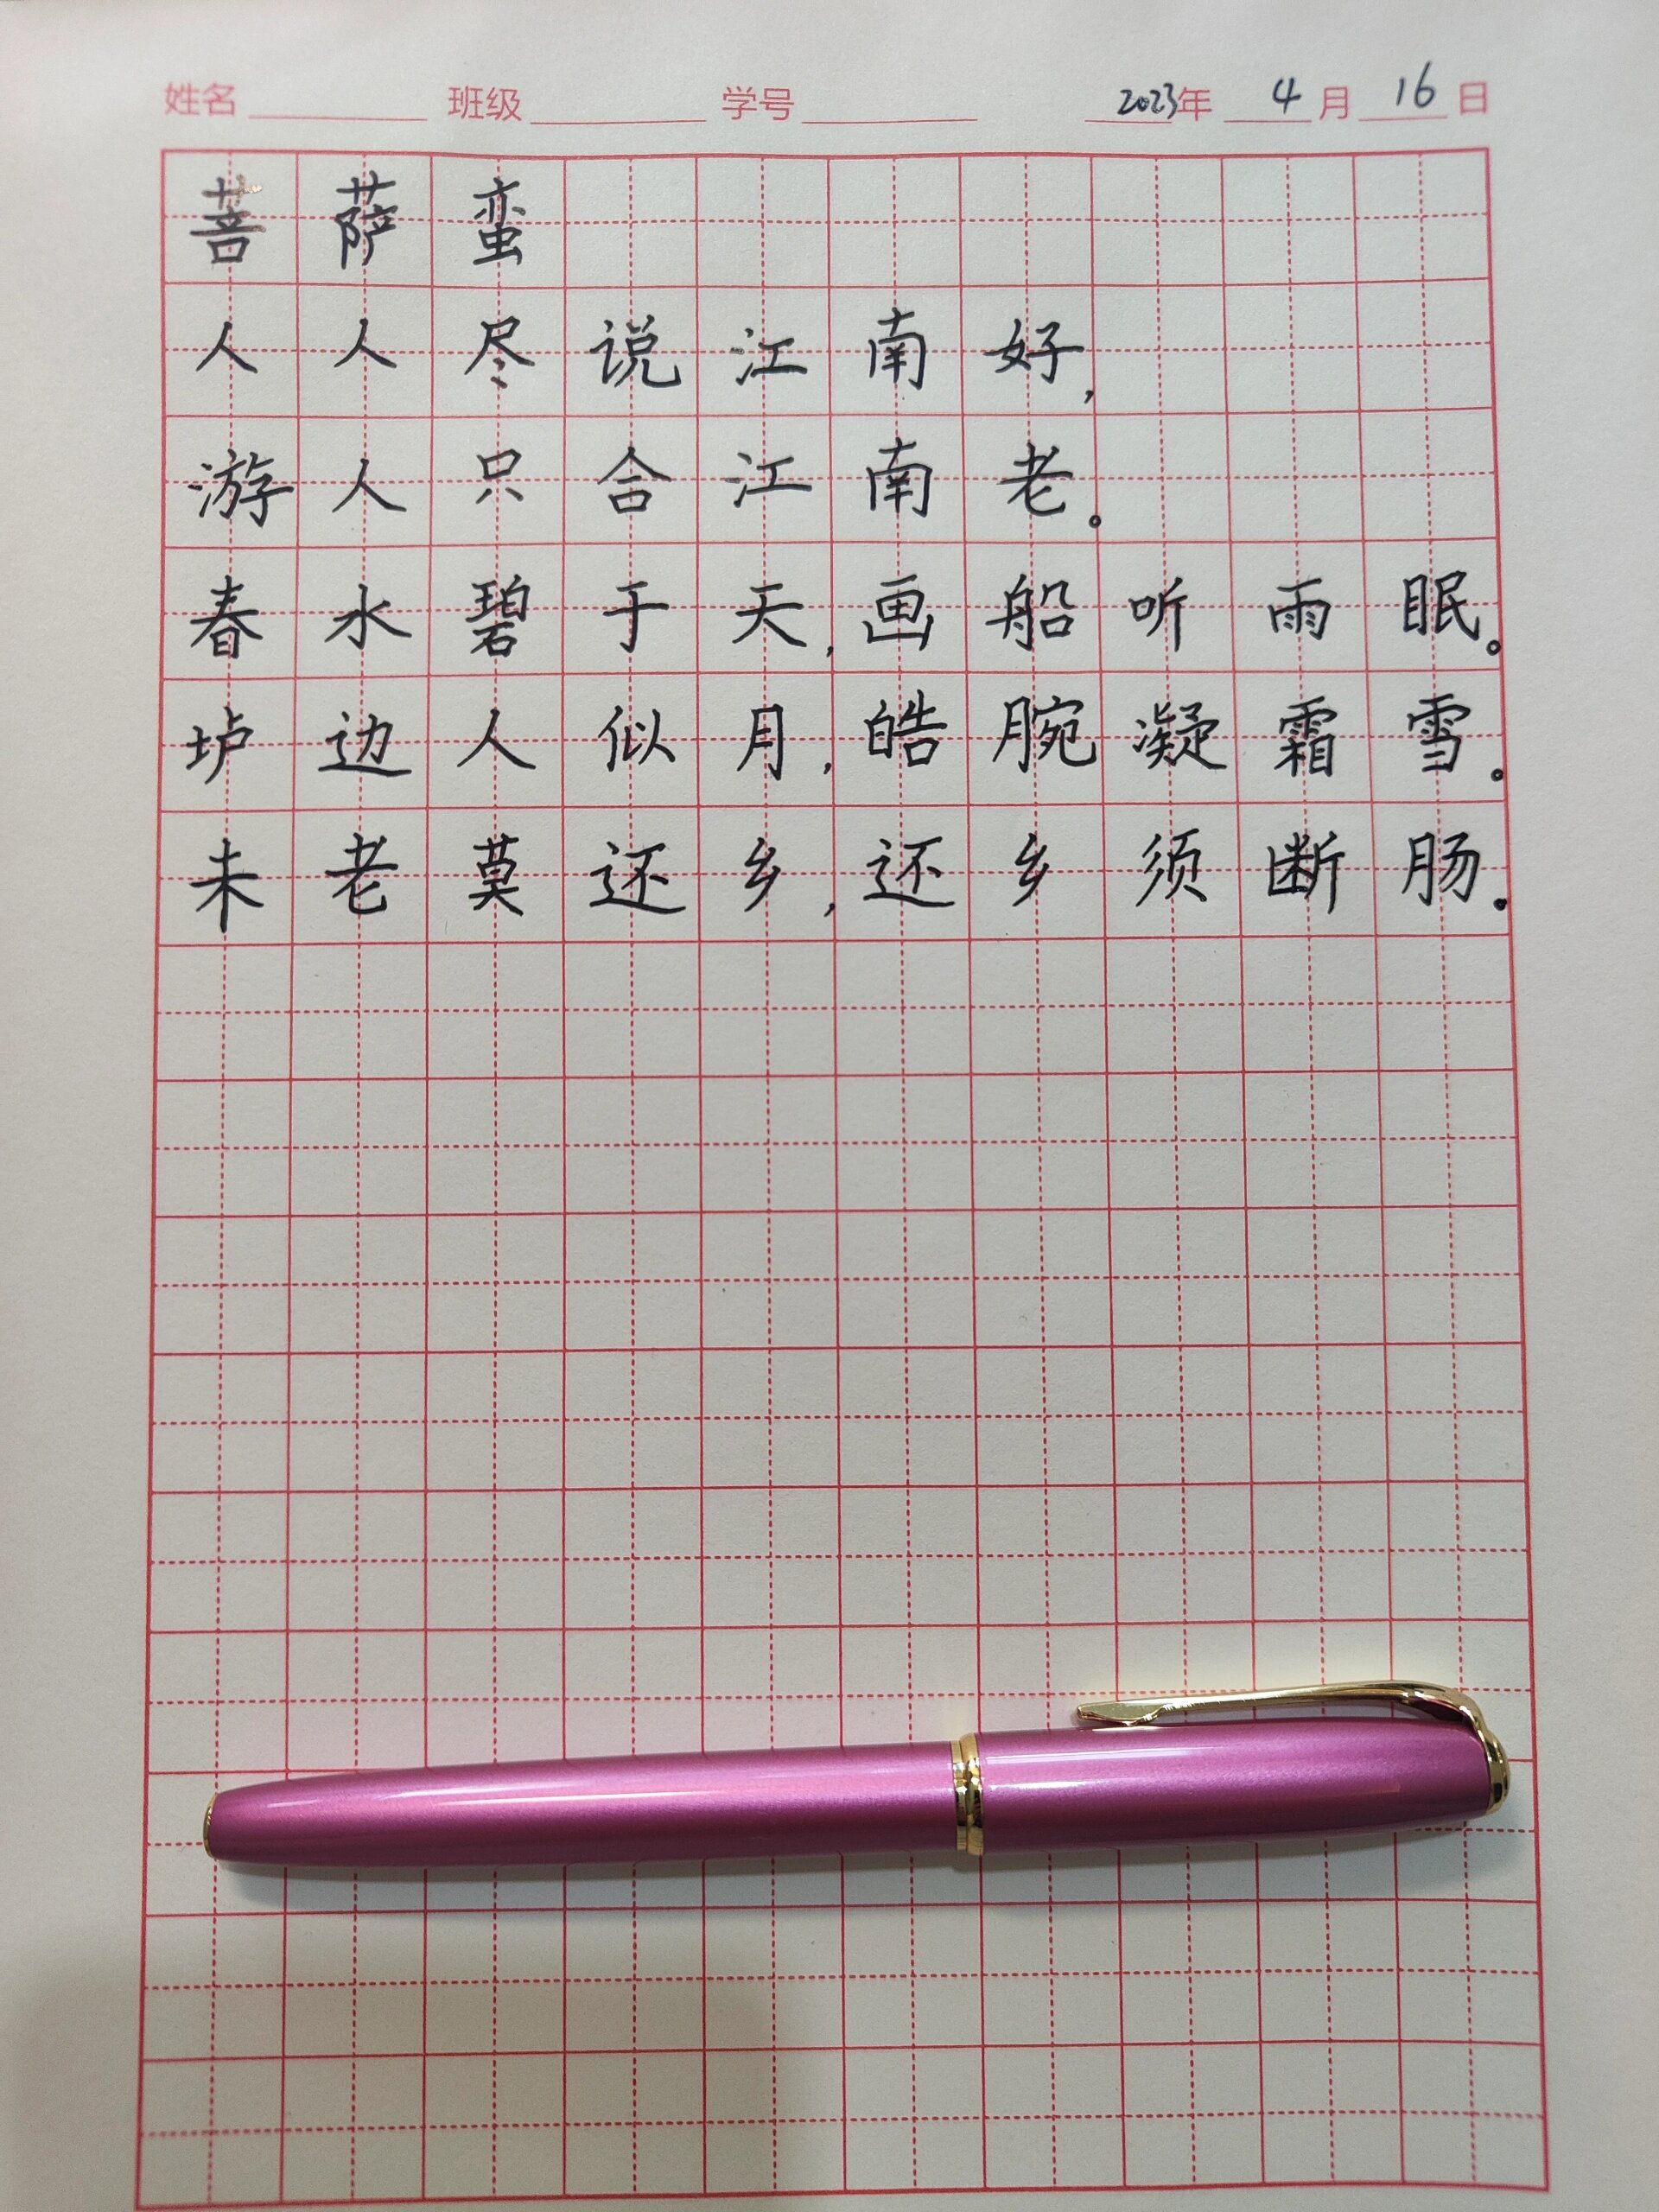 姓名 班级 学号 2023年 4月 16日
菩萨蛮
人人尽说江南好,
游人只合江南老。
春水碧于天,画船听雨眠。
垆边人似月,皓腕凝霜雪。
未老莫还乡,还乡须断肠。